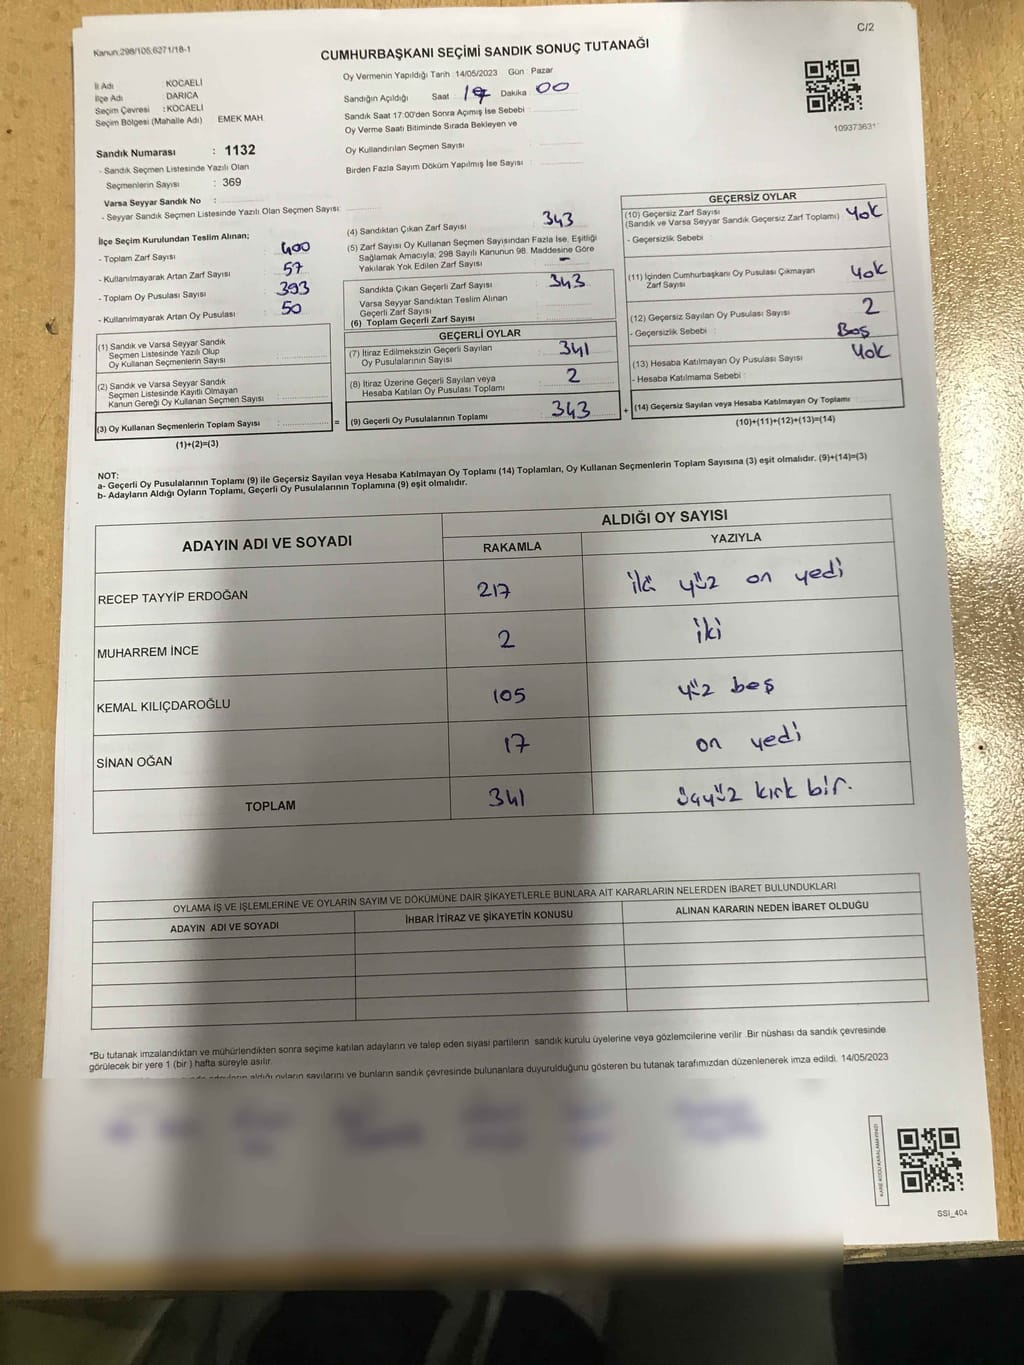 C/2
Kanun:298/105;6271/18-1
CUMHURBAŞKANI SEÇİMİ SANDIK SONUÇ TUTANAĞI
İl Adı : KOCAELİ
İlçe Adı : DARICA
Seçim Çevresi : KOCAELİ
Seçim Bölgesi (Mahalle Adı) EMEK MAH.
Sandık Numarası : 1132
- Sandık Seçmen Listesinde Yazılı Olan
Seçmenlerin Sayısı : 369
Varsa Seyyar Sandık No :
- Seyyar Sandık Seçmen Listesinde Yazılı Olan Seçmen Sayısı:
Oy Vermenin Yapıldığı Tarih :14/05/2023 Gün : Pazar
Sandığın Açıldığı Saat : 17 Dakika : 00
Sandık Saat 17:00'den Sonra Açımış İse Sebebi :
Oy Verme Saati Bitiminde Sırada Bekleyen ve
Oy Kullandırılan Seçmen Sayısı :
Birden Fazla Sayım Döküm Yapılmış İse Sayısı :
İlçe Seçim Kurulundan Teslim Alınan;
- Toplam Zarf Sayısı : 400
- Kullanılmayarak Artan Zarf Sayısı : 57
- Toplam Oy Pusulası Sayısı : 393
- Kullanılmayarak Artan Oy Pusulası : 50
(1) Sandık ve Varsa Seyyar Sandık
Seçmen Listesinde Yazılı Olup
Oy Kullanan Seçmenlerin Sayısı :
(2) Sandık ve Varsa Seyyar Sandık
Seçmen Listesinde Kayıtlı Olmayan
Kanun Gereği Oy Kullanan Seçmen Sayısı :
(3) Oy Kullanan Seçmenlerin Toplam Sayısı :
(1)+(2)=(3)
=
(4) Sandıktan Çıkan Zarf Sayısı : 343
(5) Zarf Sayısı Oy Kullanan Seçmen Sayısından Fazla İse, Eşitliği
Sağlamak Amacıyla; 298 Sayılı Kanunun 98. Maddesine Göre
Yakılarak Yok Edilen Zarf Sayısı : -
Sandıkta Çıkan Geçerli Zarf Sayısı : 343
Varsa Seyyar Sandıktan Teslim Alınan
Geçerli Zarf Sayısı :
(6) Toplam Geçerli Zarf Sayısı :
GEÇERLİ OYLAR
(7) İtiraz Edilmeksizin Geçerli Sayılan
Oy Pusulalarının Sayısı : 341
(8) İtiraz Üzerine Geçerli Sayılan veya
Hesaba Katılan Oy Pusulası Toplamı : 2
(9) Geçerli Oy Pusulalarının Toplamı : 343
+
GEÇERSİZ OYLAR
(10) Geçersiz Zarf Sayısı
(Sandık ve Varsa Seyyar Sandık Geçersiz Zarf Toplamı) : Yok
- Geçersizlik Sebebi :
(11) İçinden Cumhurbaşkanı Oy Pusulası Çıkmayan
Zarf Sayısı : Yok
(12) Geçersiz Sayılan Oy Pusulası Sayısı : 2
- Geçersizlik Sebebi : Boş
(13) Hesaba Katılmayan Oy Pusulası Sayısı : Yok
- Hesaba Katılmama Sebebi :
(14) Geçersiz Sayılan veya Hesaba Katılmayan Oy Toplamı :
(10)+(11)+(12)+(13)=(14)
NOT:
a- Geçerli Oy Pusulalarının Toplamı (9) ile Geçersiz Sayılan veya Hesaba Katılmayan Oy Toplamı (14) Toplamları, Oy Kullanan Seçmenlerin Toplam Sayısına (3) eşit olmalıdır. (9)+(14)=(3)
b- Adayların Aldığı Oyların Toplamı, Geçerli Oy Pusulalarının Toplamına (9) eşit olmalıdır.
ADAYIN ADI VE SOYADI
ALDIĞI OY SAYISI
RAKAMLA YAZIYLA
RECEP TAYYİP ERDOĞAN 217 iki yüz on yedi
MUHARREM İNCE 2 iki
KEMAL KILIÇDAROĞLU 105 yüz beş
SİNAN OĞAN 17 on yedi
TOPLAM 341 üçyüz kırk bir.
OYLAMA İŞ VE İŞLEMLERİNE VE OYLARIN SAYIM VE DÖKÜMÜNE DAİR ŞİKAYETLERLE BUNLARA AİT KARARLARIN NELERDEN İBARET BULUNDUKLARI
ADAYIN ADI VE SOYADI İHBAR İTİRAZ VE ŞİKAYETİN KONUSU ALINAN KARARIN NEDEN İBARET OLDUĞU
*Bu tutanak imzalandıktan ve mühürlendikten sonra seçime katılan adayların ve talep eden siyasi partilerin sandık kurulu üyelerine veya gözlemcilerine verilir .Bir nüshası da sandık çevresinde
görülecek bir yere 1 (bir ) hafta süreyle asılır.
adayların aldığı oyların sayılarını ve bunların sandık çevresinde bulunanlara duyurulduğunu gösteren bu tutanak tarafımızdan düzenlenerek imza edildi. 14/05/2023
KARE KODU KARALAMAYINIZ!
SSİ_404